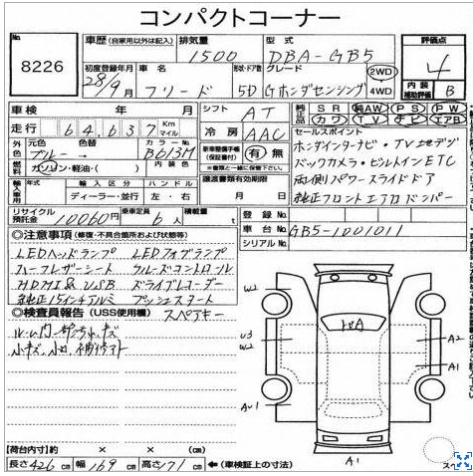 コンパクトコーナー
No. 8226
車歴 (自家用以外は記入) 排気量 1500 型式 DBA-GB5 評価点 4
初度登録年月 28/9月 車名 フリード 形状・ドア数 5D グレード Gホンダセンシング 2WD 4WD 内装補助評価 B
車検 年 月 シフト AT 純正 SR AW PS PW
走行 64,637 Km マイル 冷房 AAC カワ TV ナビ エアB
外色 元色 ブルー→ 色替 カラーNo. B613M 内装色 新車整備手帳(保証書付) 有 無 セールスポイント
燃料 ガソリン・軽油・( ) ※書類と一緒に保管下さい。 ホンダインターナビ・TV地デジ
輸入車 年式 輸入区分 ハンドル 譲渡書類有効期限 バックカメラ・ビルトインETC
ディーラー・並行 左・右 月 日 両側パワースライドドア
純正フロントエアロバンパー
リサイクル預託金 10060円 乗車定員 6人 積載量 t 登録No.
車台No. GB5-1001011
シリアルNo.
◎注意事項 (修復・不具合箇所および状態等)
LEDヘッドランプ LEDフォグランプ
ハーフレザーシート クルーズコントロール
HDMI&USB ドライブレコーダー
純正15インチアルミ プッシュスタート
◎検査員報告 (USS使用欄) スペアキー
ルーム内一部汚れ、キズ
小キズ、小凹
W2
U3
W2
AU1
A2
A1
A1
【荷台内寸】約 × × (cm)
長さ 426 cm 幅 169 cm 高さ 171 cm ←(車検証上の寸法)